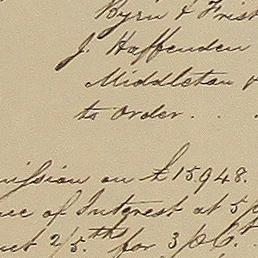 Byrn & Frist
J. Haffenden
Middleton &
to order . .
mission on £15948.
ue of Interest at 5 p
uct 2/5.th for 3 p Ct.